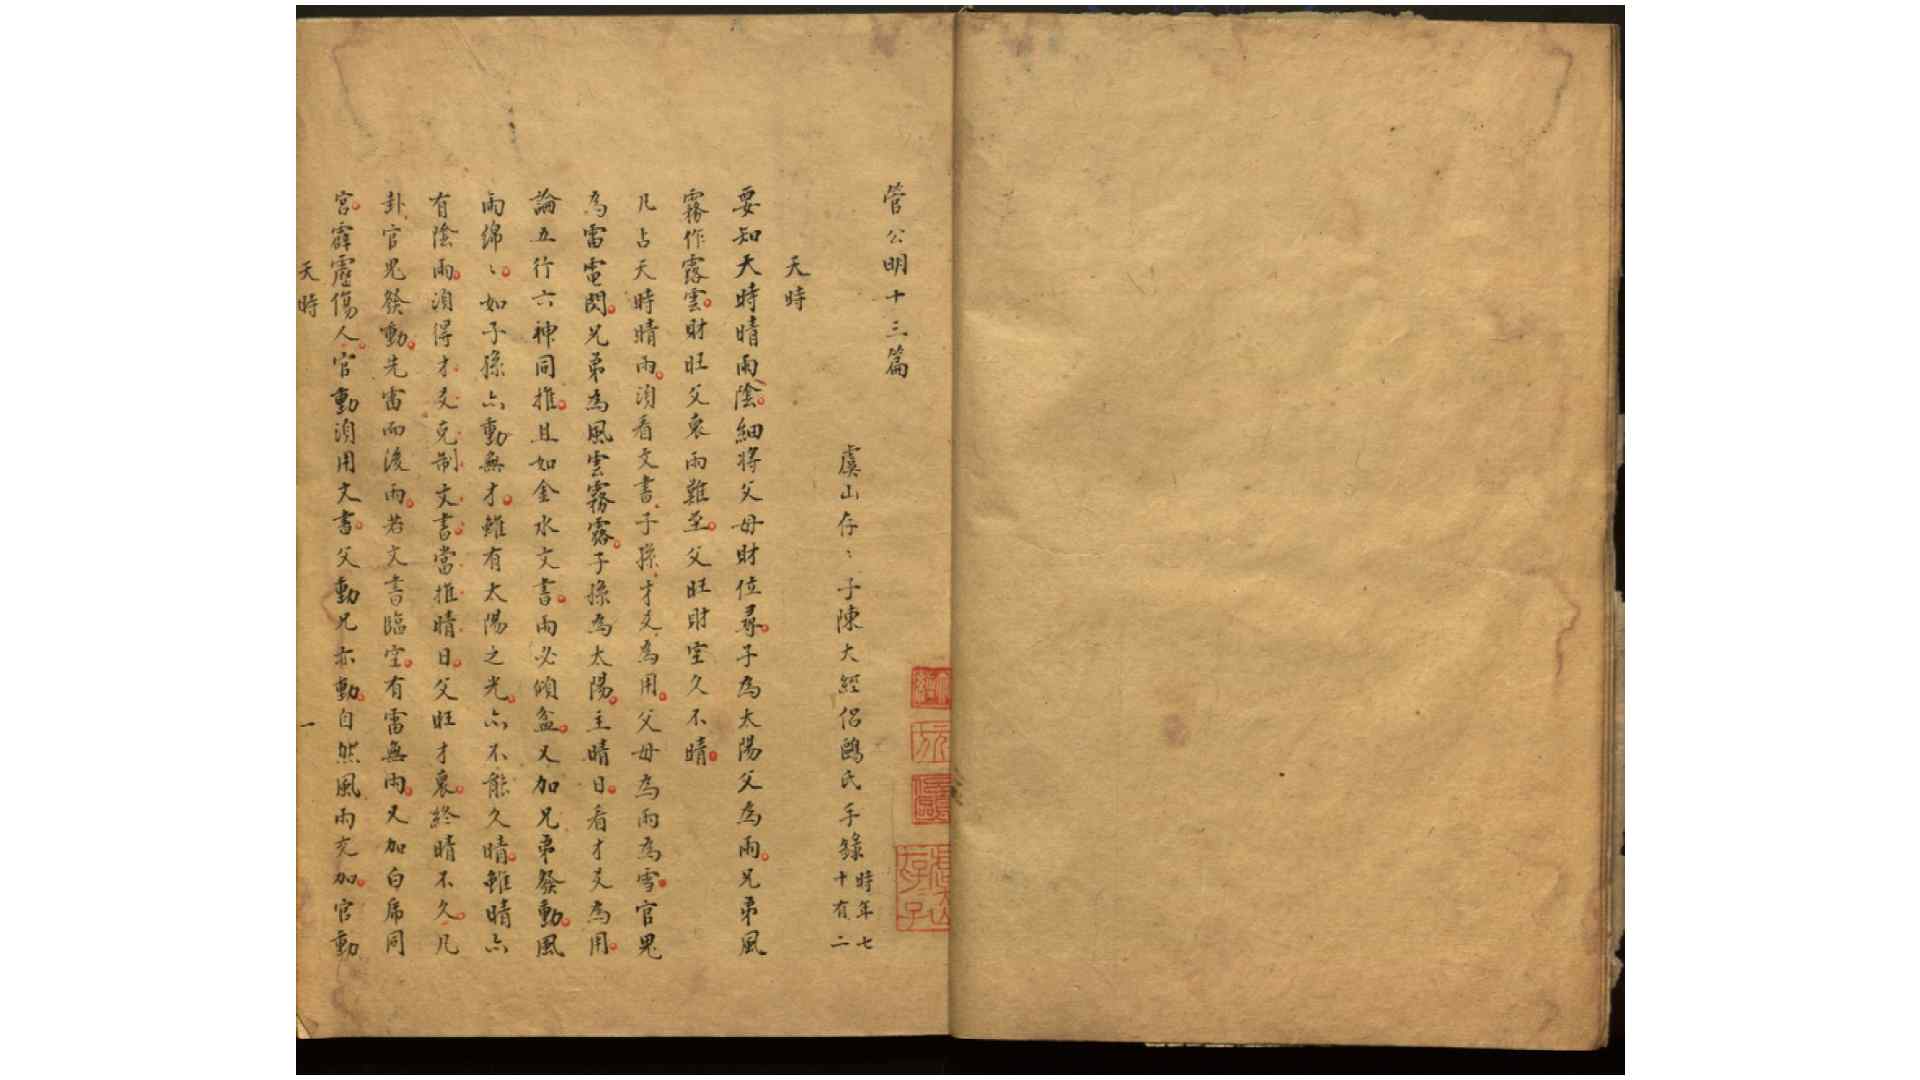 管公明十三篇
虞山存〻子陳大經侶鷗氏手錄時年七十有二
天時
要知天時晴雨陰細將父母財位尋子為太陽父為雨兄弟風
霧作露雲財旺父衰雨難至父旺財空久不晴
凡占天時晴雨湏看文書子孫才爻為用父母為雨為雪官鬼
為雷電閃兄弟為風雲霧露子孫為太陽主晴日看才爻為用
論五行六神同推且如金水文書雨必傾盆又加兄弟發動風
雨綿〻如子孫亦動無才雖有太陽之光亦不能久晴雖晴亦
有陰雨湏得才爻克制文書當推晴日父旺才衰終晴不久凡
卦官鬼發動先雷而後雨若文書臨空有雷無雨又加白席同
宮霹靂傷人官動湏用文書父動兄亦動自然風雨交加官動
天時 一